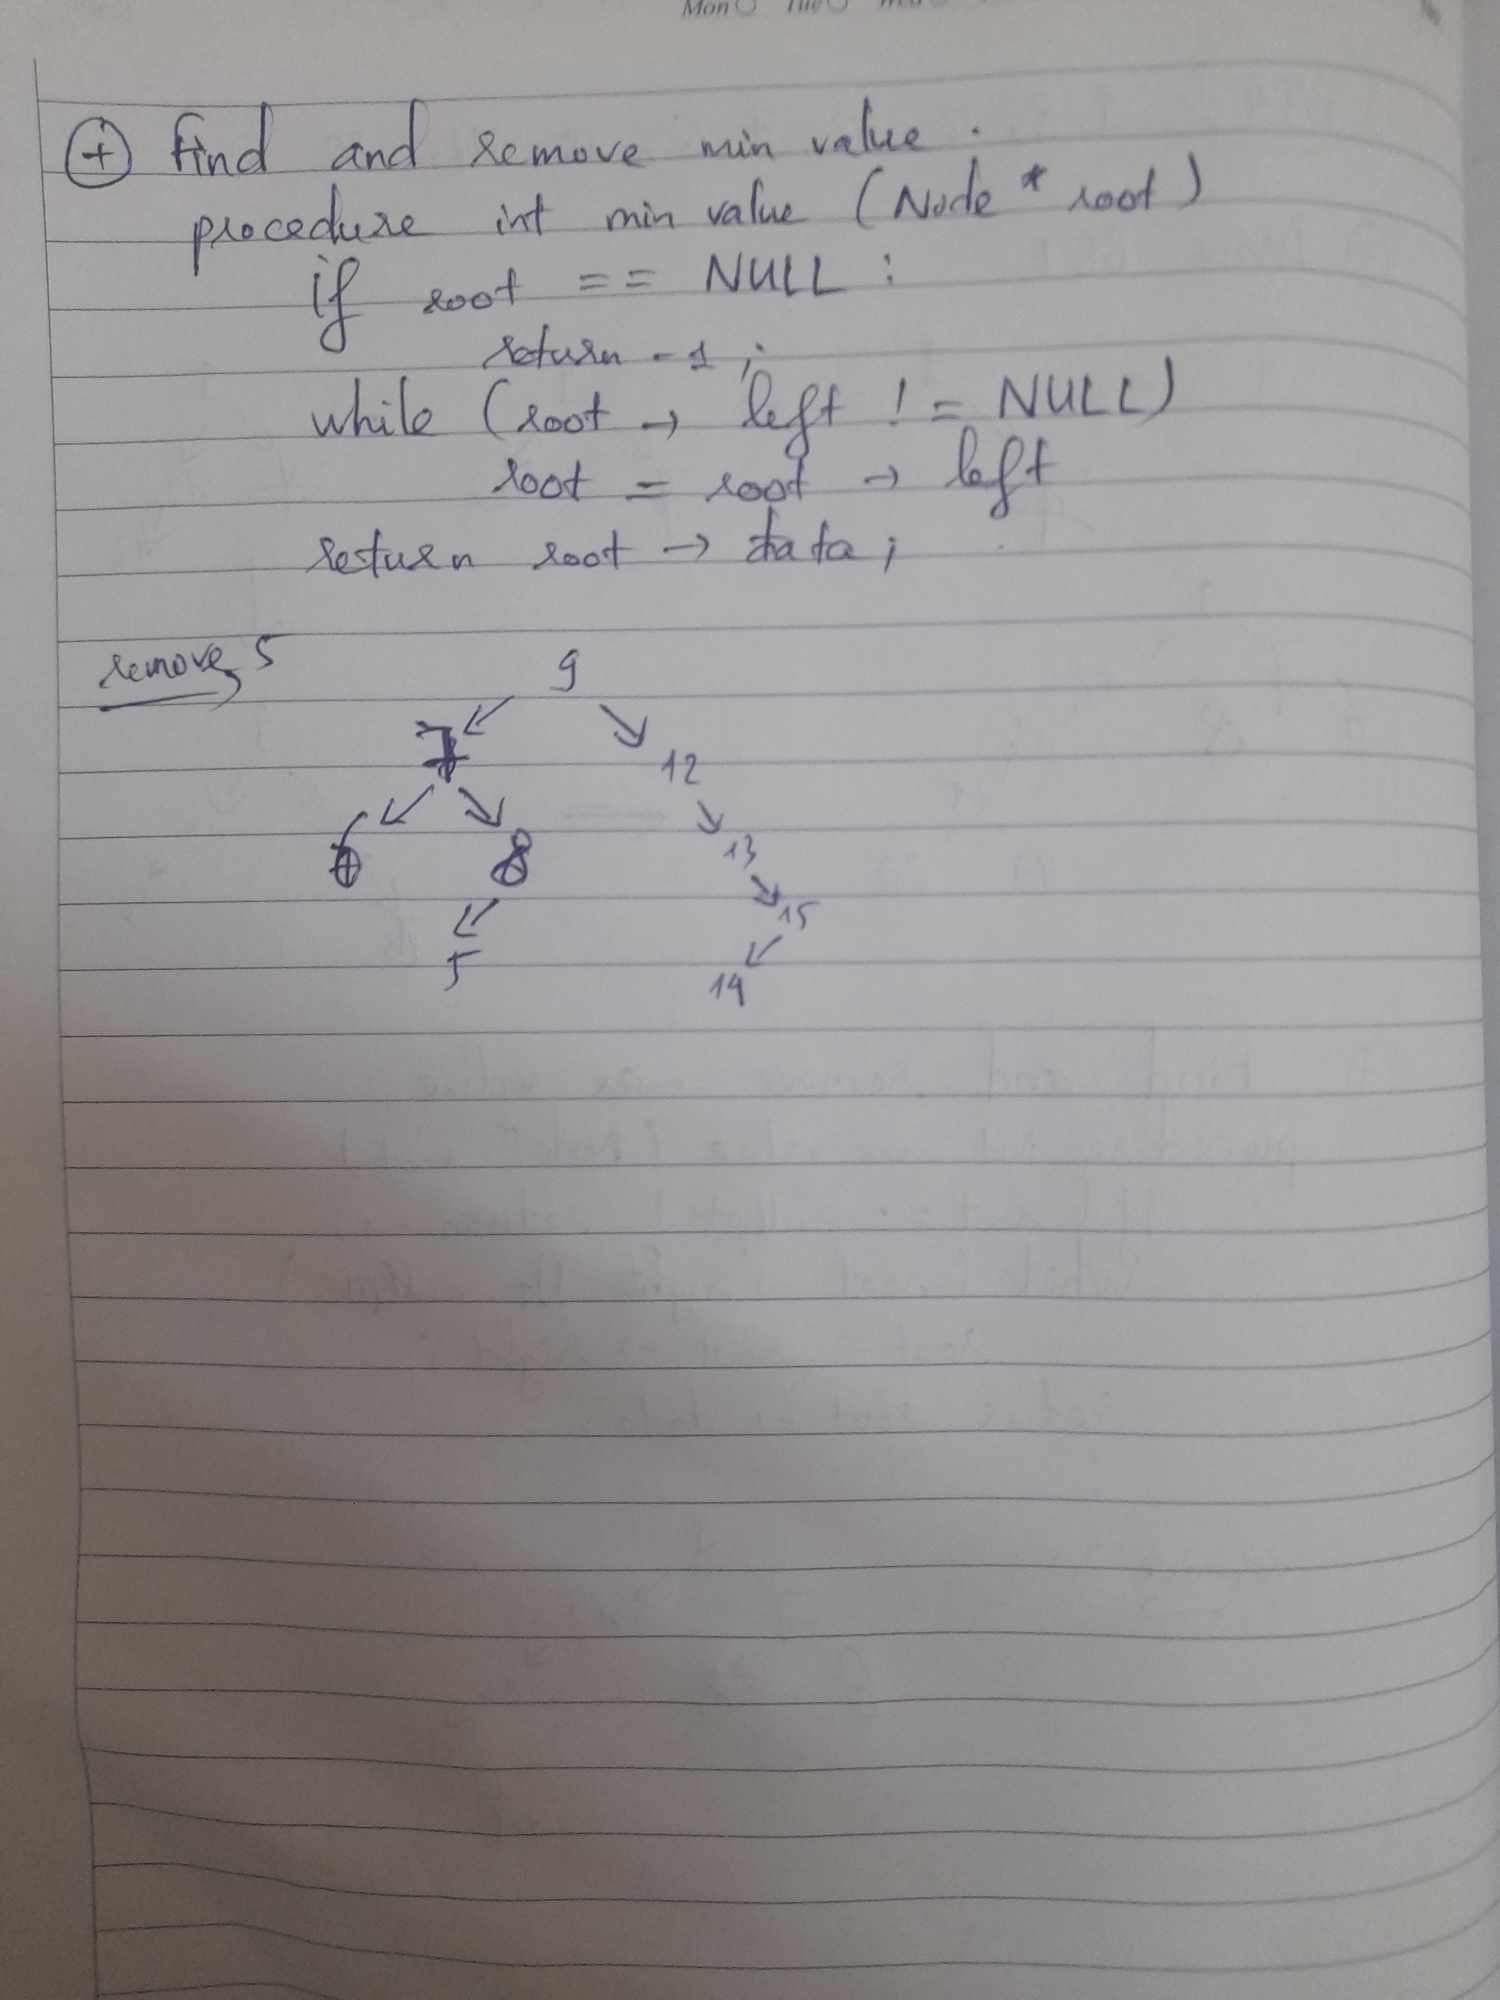 Mon Tue Wed
+ find and remove min value.
procedure int min value (Node * root)
if root == NULL :
return -1;
while (root → left != NULL)
root = root → left
return root → data;
remove 5
9
7
12
6 8
13
15
5
14